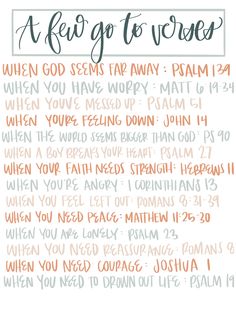 A few go to verses
WHEN GOD SEEMS FAR AWAY: PSALM 139
WHEN YOU HAVE WORRY: MATT 6:19-34
WHEN YOU'VE MESSED UP: PSALM 51
WHEN YOU'RE FEELING DOWN: JOHN 14
WHEN THE WORLD SEEMS BIGGER THAN GOD: PS 90
WHEN A BOY BREAKS YOUR HEART: PSALM 27
WHEN YOUR FAITH NEEDS STRENGTH: HEBREWS 11
WHEN YOU'RE ANGRY: 1 CORINTHIANS 13
WHEN YOU FEEL LEFT OUT: ROMANS 8:31-39
WHEN YOU NEED PEACE: MATTHEW 11:25-30
WHEN YOU ARE LONELY: PSALM 23
WHEN YOU NEED REASSURANCE: ROMANS 8
WHEN YOU NEED COURAGE: JOSHUA 1
WHEN YOU NEED TO DROWN OUT LIFE: PSALM 19